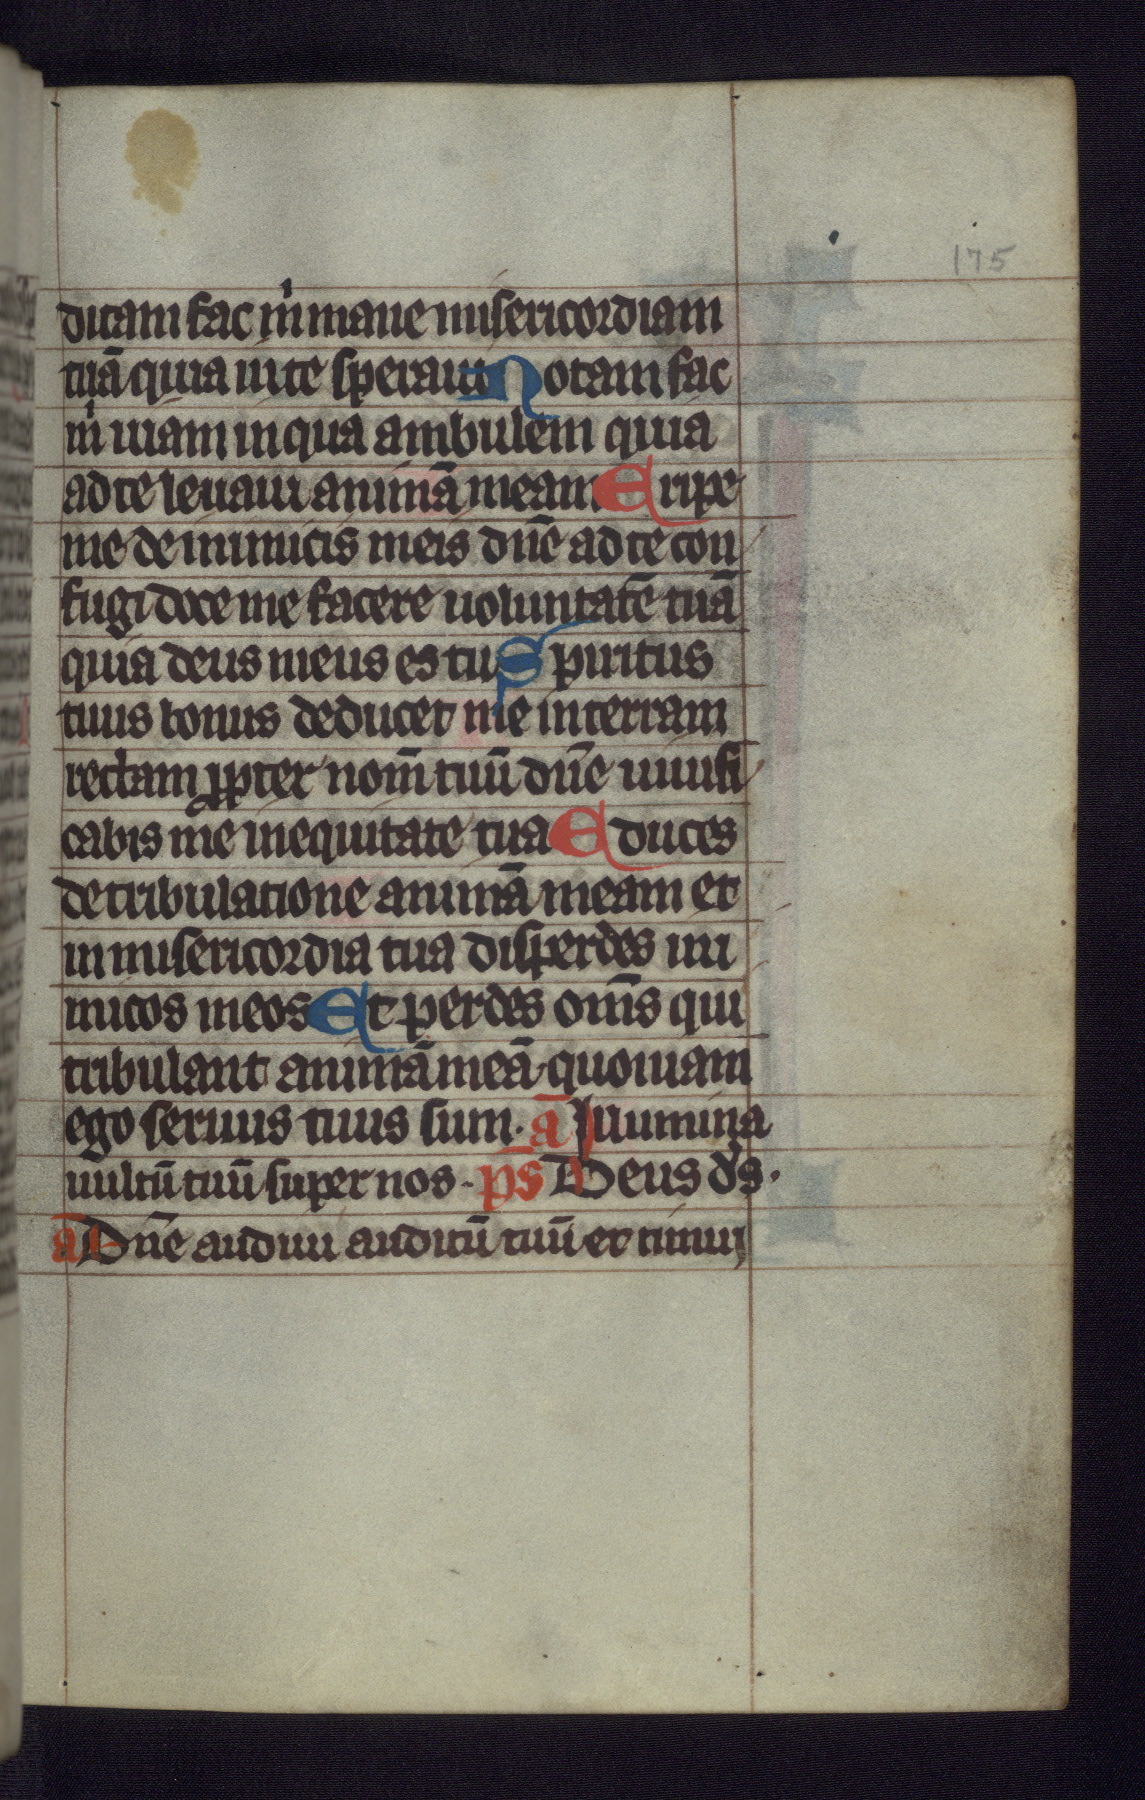 175
ditam fac m̍ mane misericordiam
tuā quia in te speraui Notam fac
m̍ uiam in qua ambulem quia
ad te leuaui animā meam Eripe
me de inimicis meis dn̄e ad te con
fugi doce me facere uoluntatē tuā
quia deus meus es tu Spiritus
tuus bonus deducet me in terram
rectam ꝓpter nom̄ tuū dn̄e uiuifi
cabis me in equitate tua Educes
de tribulatione animā meam et
in misericordia tua disperdes ini
micos meos Et perdes om̄s qui
tribulant animā meā quoniam
ego seruus tuus sum. a̅ Illumina
uultū tuū super nos. ps̄ Deus ds̄.
a̅ Dn̄e audiui auditū tuū et timui